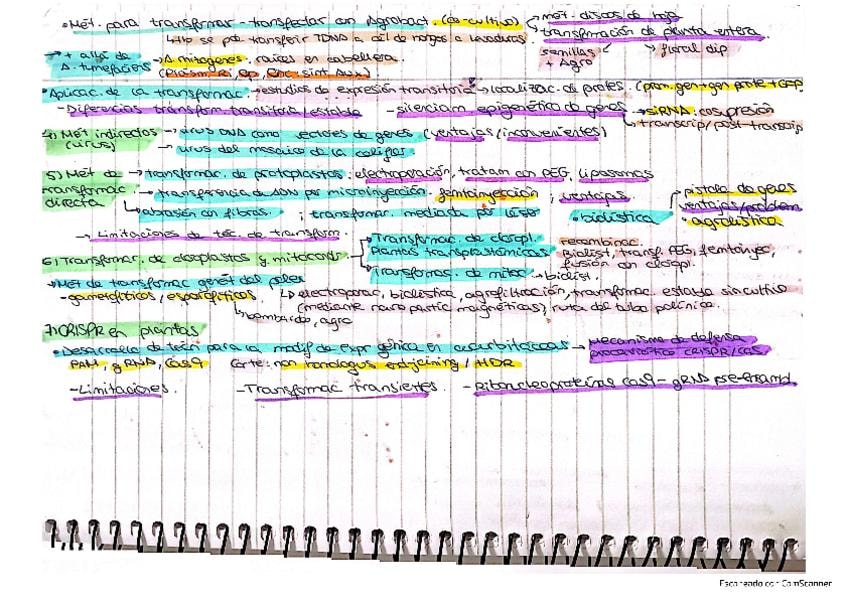 • Mét. para transformar-transfectar con Agrobact. (co-cultivo) → mét. discos de hoja
→ transformación de planta entera.
↳ tb se pde transferir TDNA a cél de hongos a levaduras. semillas + Agro → floral dip
→ + allá de A. tumefaciens → A. rhizogenes, raíces en cabellera.
(Plásm. Ri, sint. Aux)
• Aplicac. de la transformac. → estudios de expresión transitoria → localizac. de protes. (prom. gen + gen prote + GFP)
- Diferencias transform. transitoria/estable - silenciam epigenético de genes → siRNA: cosupresión
→ transcrip/post-transcrip
4) Mét indirectos (virus) → virus DNA como vectores de genes (ventajas/inconvenientes)
→ virus del mosaico de la coliflor
5) Mét de transformac. directa → transformac. de protoplastos: electroporación, tratam con PEG, liposomas
→ transferencia de ADN por microinyección. femtoinyección; ventajas
→ pistola de genes
ventajas/problem
↳ abrasión con fibras. ; transformac. mediada por • biolística • agrolística
- Limitaciones de téc. de transform.
6) Transformac. de cloroplastos y mitocond. → Transformac. de clorop. Plantas transplastómicas recombinac. Biolist, transf. PEG, femtoinyec, fusión con clorop.
→ Transformac. de mitoc. → biolist.
• Mét de transformac genét del polen
- gametofíticos / esporofíticos. ↳ electroporac, biolística, agrofiltración, transformac. estable sin cultivo
(mediante nano partíc magnéticas), ruta del tubo polínico.
↳ bombardeo, agro
7) CRISPR en plantas
• Desarrollo de tecn para la modif de expr génica en cucurbitáceas → Mecanismo de defensa procariótico CRISPR/Cas.
PAM, gRNA, Cas9 Corte: non homologus end joining / HDR
- Limitaciones. - Transformac transientes - Ribonucleoproteína Cas9 - gRNA pre-ensambl
Escaneado con CamScanner